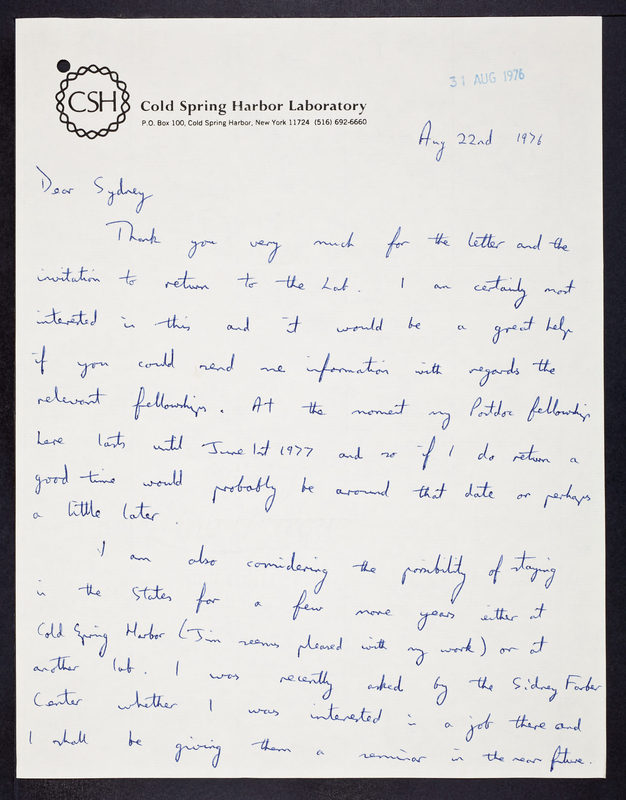 31 AUG 1976
CSH
Cold Spring Harbor Laboratory
P.O. Box 100, Cold Spring Harbor, New York 11724 (516) 692-6660
Aug 22nd 1976
Dear Sydney
Thank you very much for the letter and the
invitation to return to the Lab. I am certainly most
interested in this and it would be a great help
if you could send me information with regards the
relevant fellowships. At the moment my Postdoc fellowship
here lasts until June 1st 1977 and so if I do return a
good time would probably be around that date or perhaps
a little later.
I am also considering the possibility of staying
in the States for a few more years either at
Cold Spring Harbor (Jim seems pleased with my work) or at
another lab. I was recently asked by the Sidney Farber
Center whether I was interested in a job there and
I shall be giving them a seminar in the near future.